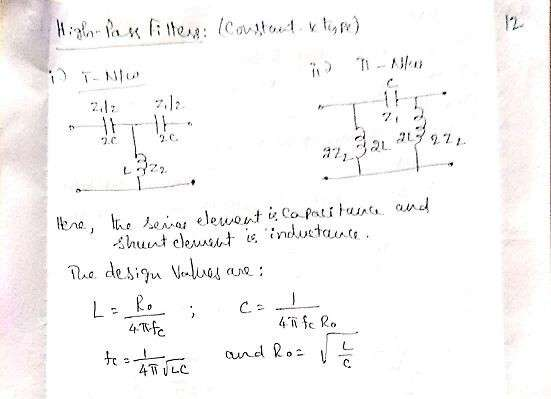 High-Pass Filters: (Constant-k type)
12
i) T-N/w
ii) Π-N/w
Z₁/2 Z₁/2
2C 2C
L Z₂
C
Z₁
2Z₂ 2L 2L 2Z₂
Here, the series element is Capacitance and
shunt element is inductance.
The design Values are:
L = R₀/4πfc ; C = 1/4πfc R₀
fc = 1/4π√LC and R₀ = √L/C